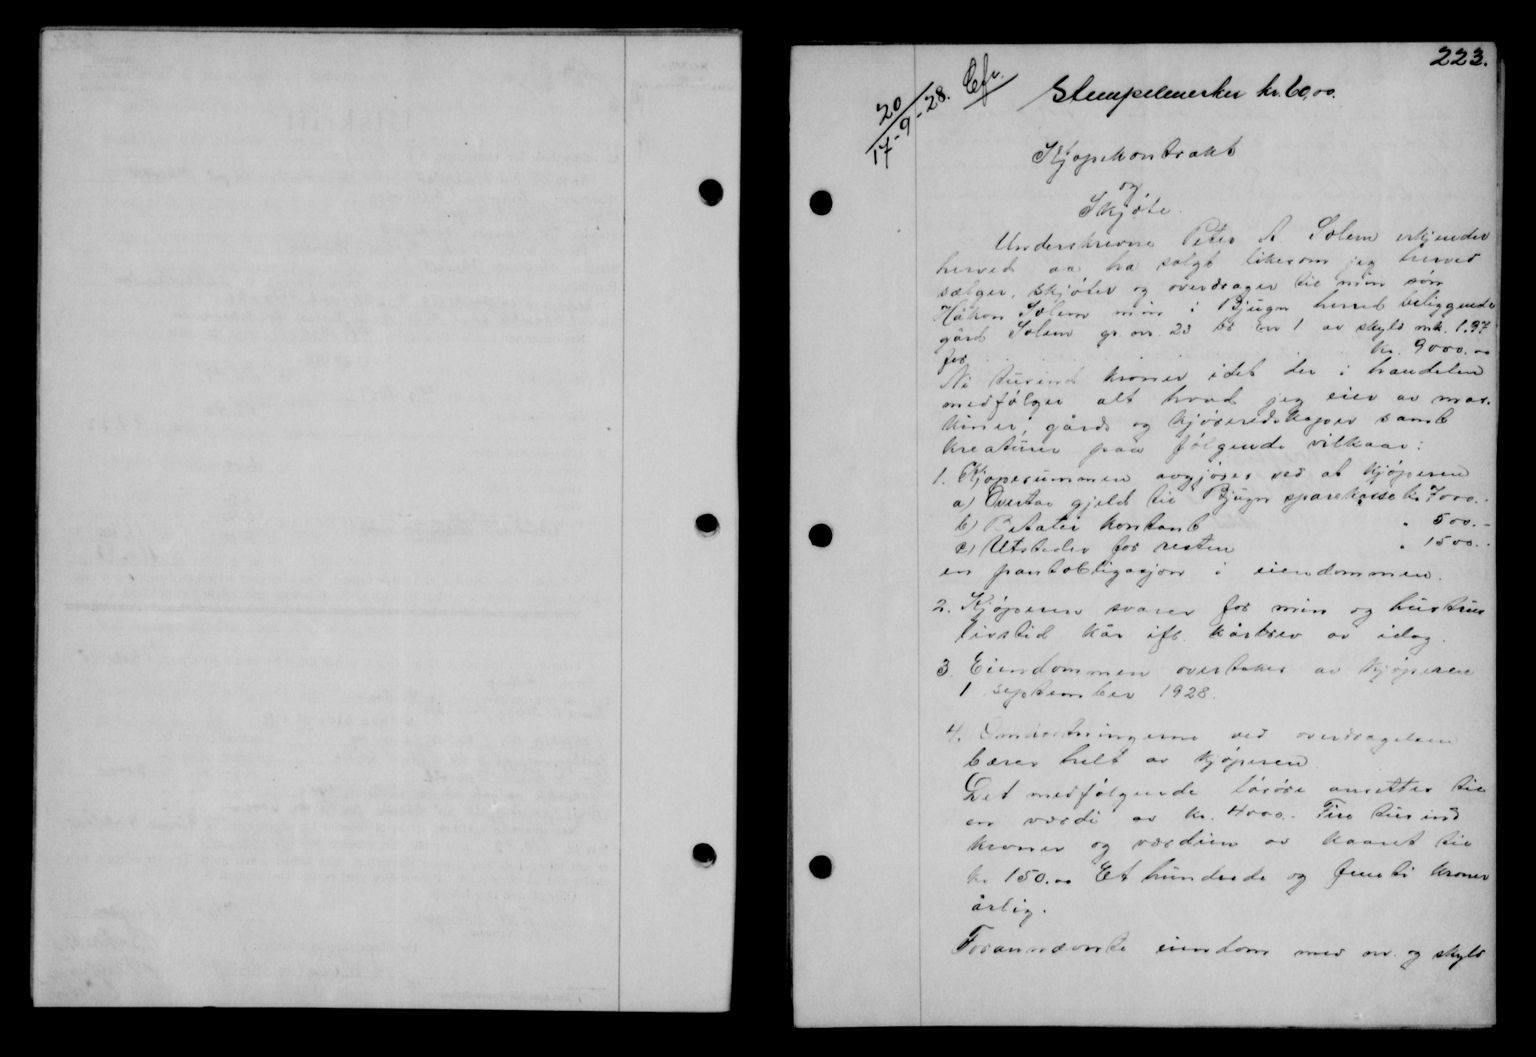 223.
20/17-9-28. Efr.
Stempelmerker kr. 60,00.
Kjøpekontrakt
og
Skjøte.
Underskrevne Peter A Solem erkjender
herved aa ha solgt likesom jeg herved
sælger, skjøter og overdrager til min søn
Håkon Solem min i Bjugn herred beliggende
gård Solem gr. nr. 23 br. nr 1 av skyld mk. 1.97
for kr. 9000.00
Ni tusind kroner idet der i handelen
medfølger alt hvad jeg eier av mas-
kiner, gårds og kjøreredskaper samt
kreaturer paa følgende vilkaar:
1. Kjøpesummen avgjøres ved at kjøperen
a) Overtar gjeld til Bjugn sparekasse kr. 7000.-
b) Betaler kontant " 500.-
c) Utsteder for resten " 1500.-
en pantobligasjon i eiendommen.
2. Kjøperen svarer for min og hustrus
livstid kår ifl. kårbrev av idag.
3. Eiendommen overtakes av kjøperen
1 september 1928.
4. Omkostningerne ved overdragelsen
bæres helt av kjøperen.
Det medfølgende løsøre ansettes til
en værdi av kr. 4000.- Fire tusind
kroner og værdien av kaaret til
kr 150.00 Et hundrede og femti kroner
årlig.
Forannævnte eiendom med nr. og skyld